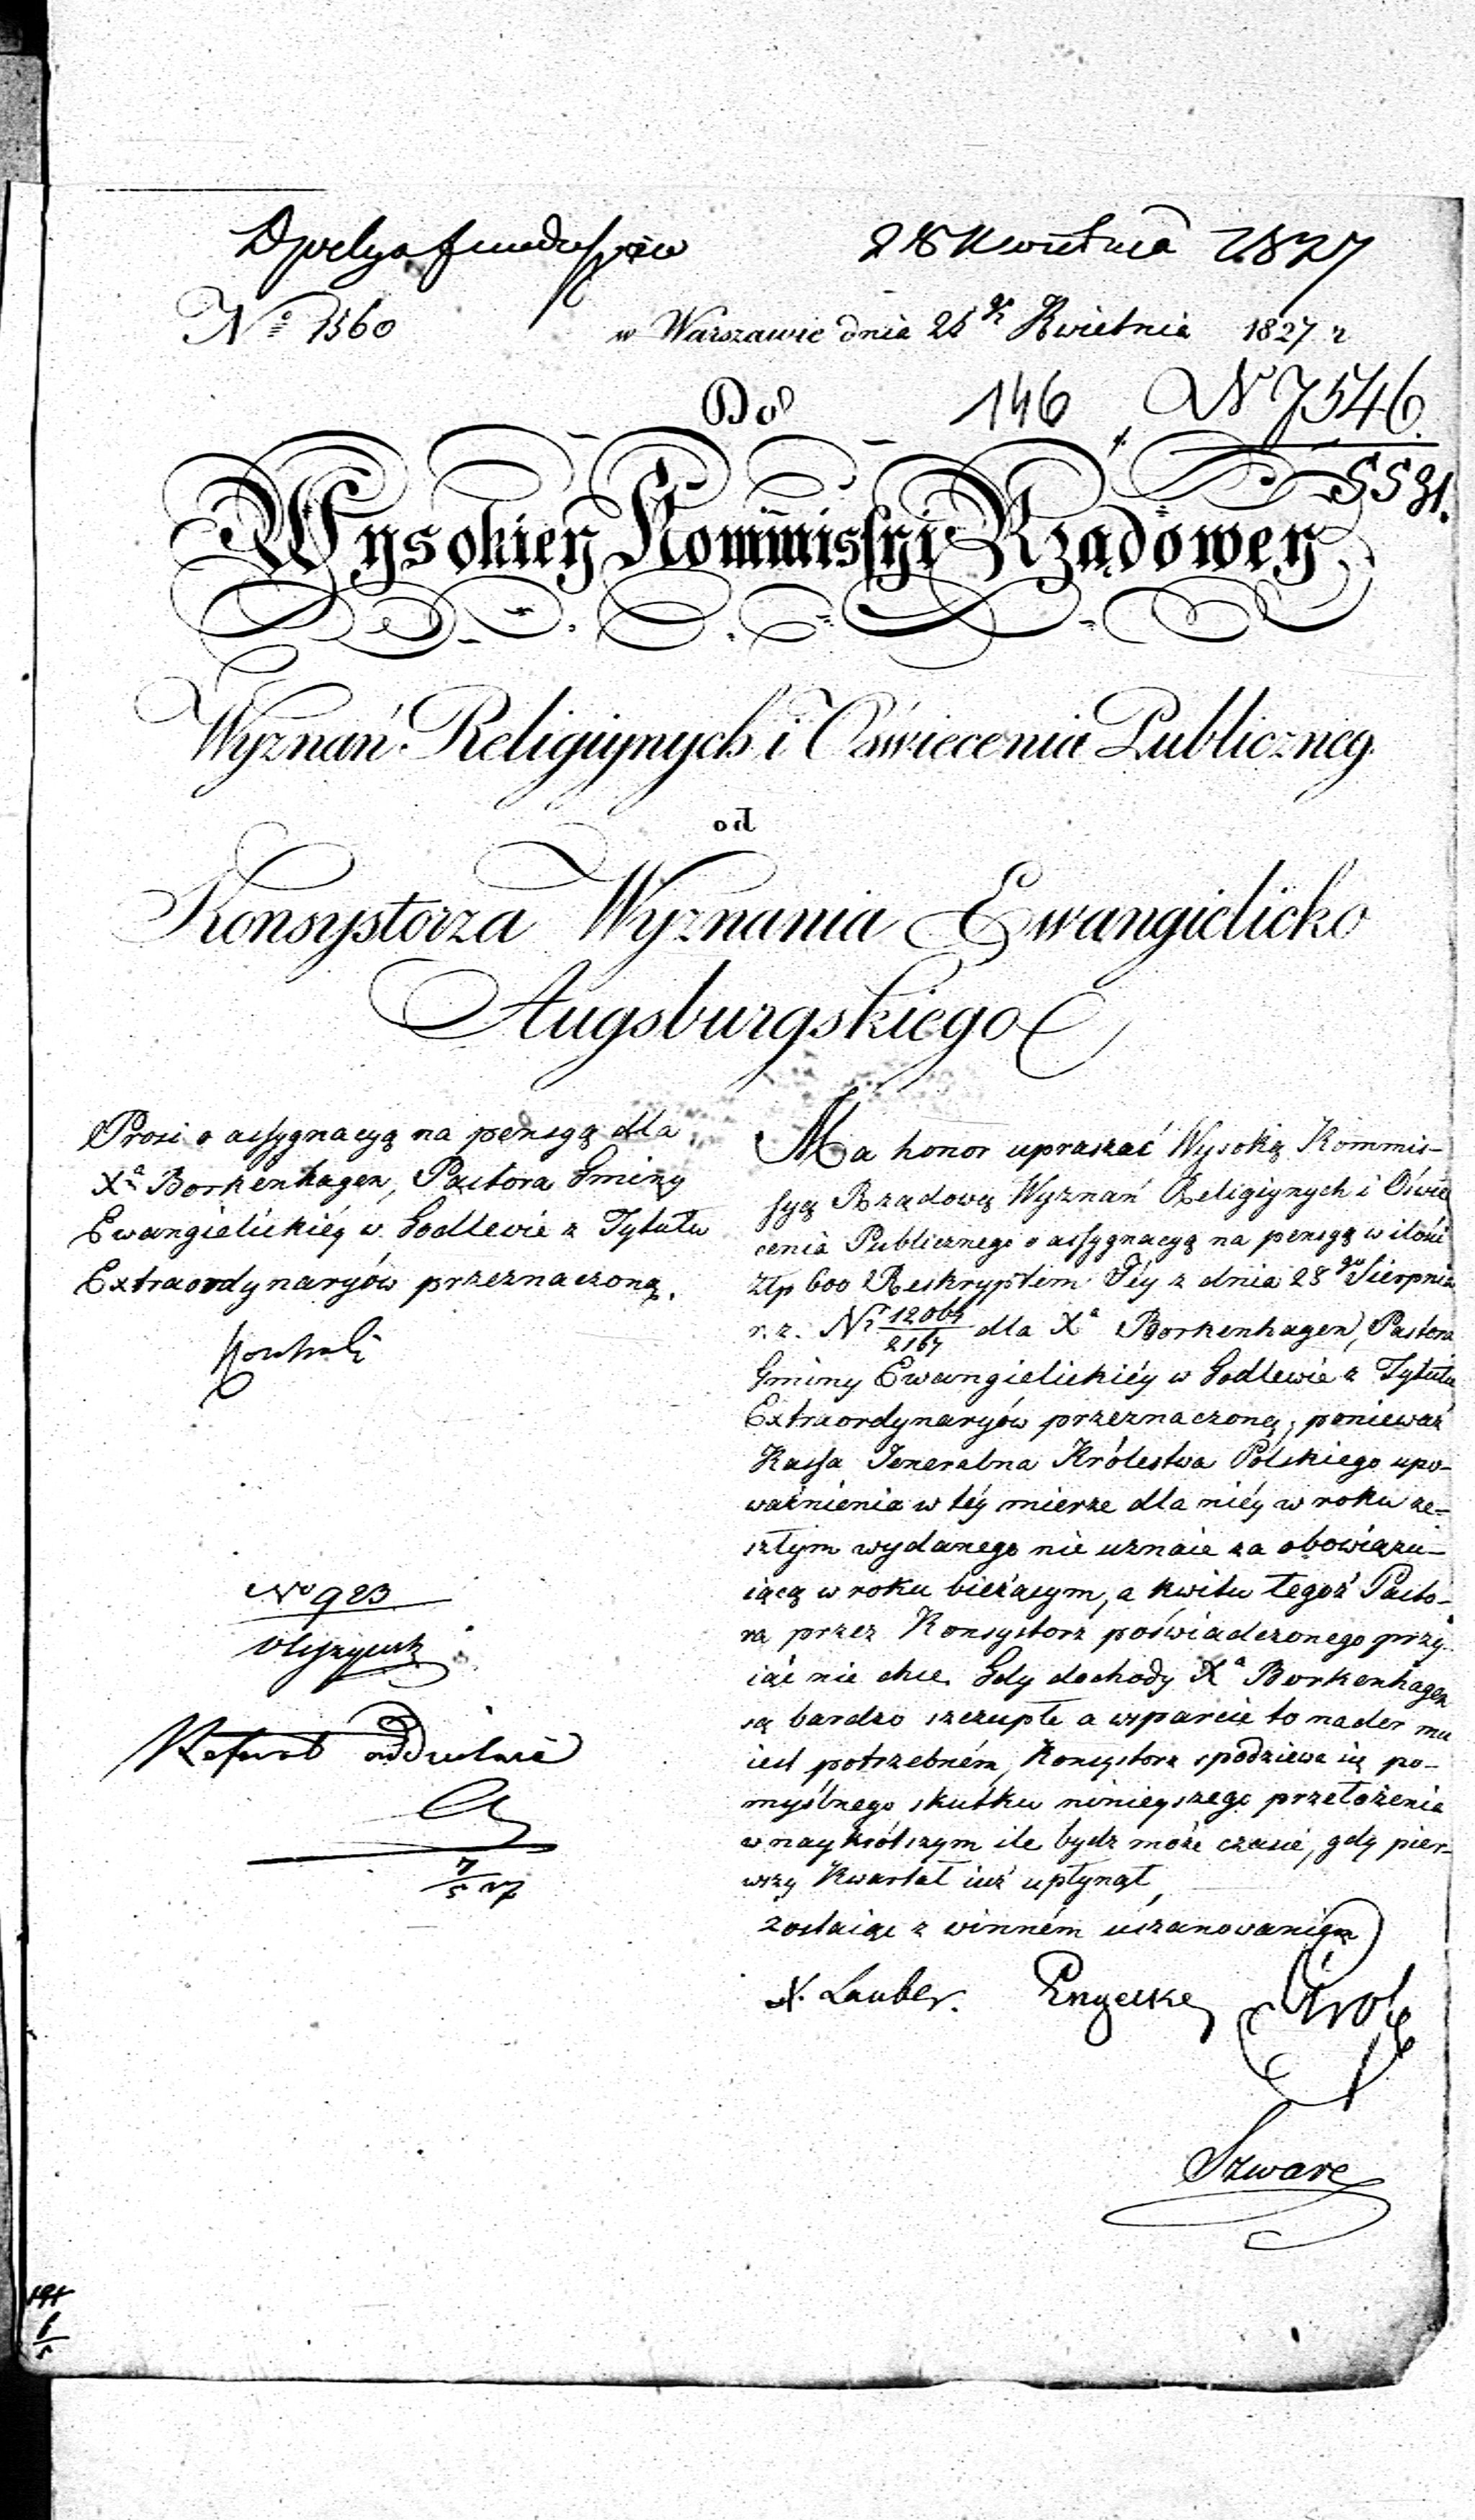 28 Kwietnia 1827
No 1360 w Warszawie dnia 25 Kwietnia 1827 r
Do
146 No 7546
5531.
Wysokiey Kommissyi Rządowey
Wyznań Religiynych i Oświecenia Publiczneg
od
Konsystorza Wyznania Ewangielicko
Augsburgskiego
Prosi o assygnacyą na pensyą dla
Xa Borkenhagen, Pastora Gminy
Ewangielickiéy w Godlewie z Tytułu
Extraordynaryów przeznaczoną.
No 923
Referat oddzielnie
7/5 27
Ma honor upraszać Wysoką Kommis-
syą Rządową Wyznań Religiynych i Oświe
cenia Publicznego o assygnacyą na pensyą w ilości
Złp 600 Reskryptem Téy z dnia 28go Sierpnia
r. z. Nr 12064/2167 dla Xa Borkenhagen, Pastora
Gminy Ewangielickiéy w Godlewie z Tytułu
Extraordynaryów przeznaczoną; ponieważ
Kassa Jeneralna Królestwa Polskiego upo-
ważnienia w téy mierze dla niéy w roku ze-
szłym wydanego nie uznaie za obowiązu-
iącą w roku bieżącym, a kwitu tegoż Pasto-
ra przez Konsystorz poświadczonego przy
iąć nie chce. Gdy dochody Xa Borkenhagen
są bardzo szczupłe a wsparcie to nader mu
iest potrzebném, Konsystorz spodziewa się po-
myślnego skutku ninieyszego przełożenia
w naykrótszym ile bydz może czasie, gdy pier-
wszy Kwartał iuż upłynął,
zostaiąc z winném uszanowaniem
X. Lauber. Engelke
Szwarc